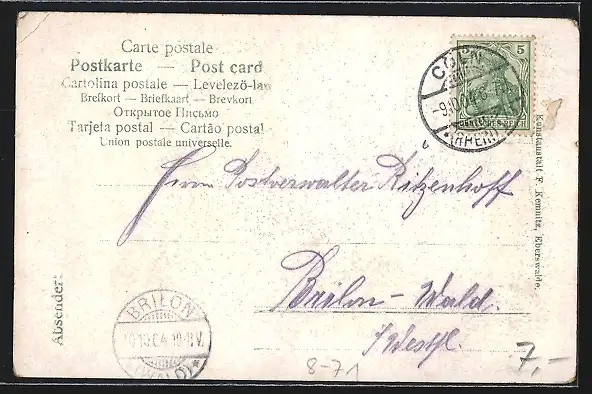 Carte postale
Postkarte — Post card
Cartolina postale — Levelező-lap
Brefkort — Briefkaart — Brevkort
Открытое Письмо
Tarjeta postal — Cartão postal
Union postale universelle.
5
DEUTSCHES REICH
CÖLN
-9.10.04
*(RHEIN)
Herrn Postverwalter Ritzenhoff
Brilon-Wald.
i/Westfl.
Absender:
BRILON
10.10.04 10-11V.
(WALD)*
8-71
7,-
Kunstanstalt F. Kemnitz, Eberswalde.